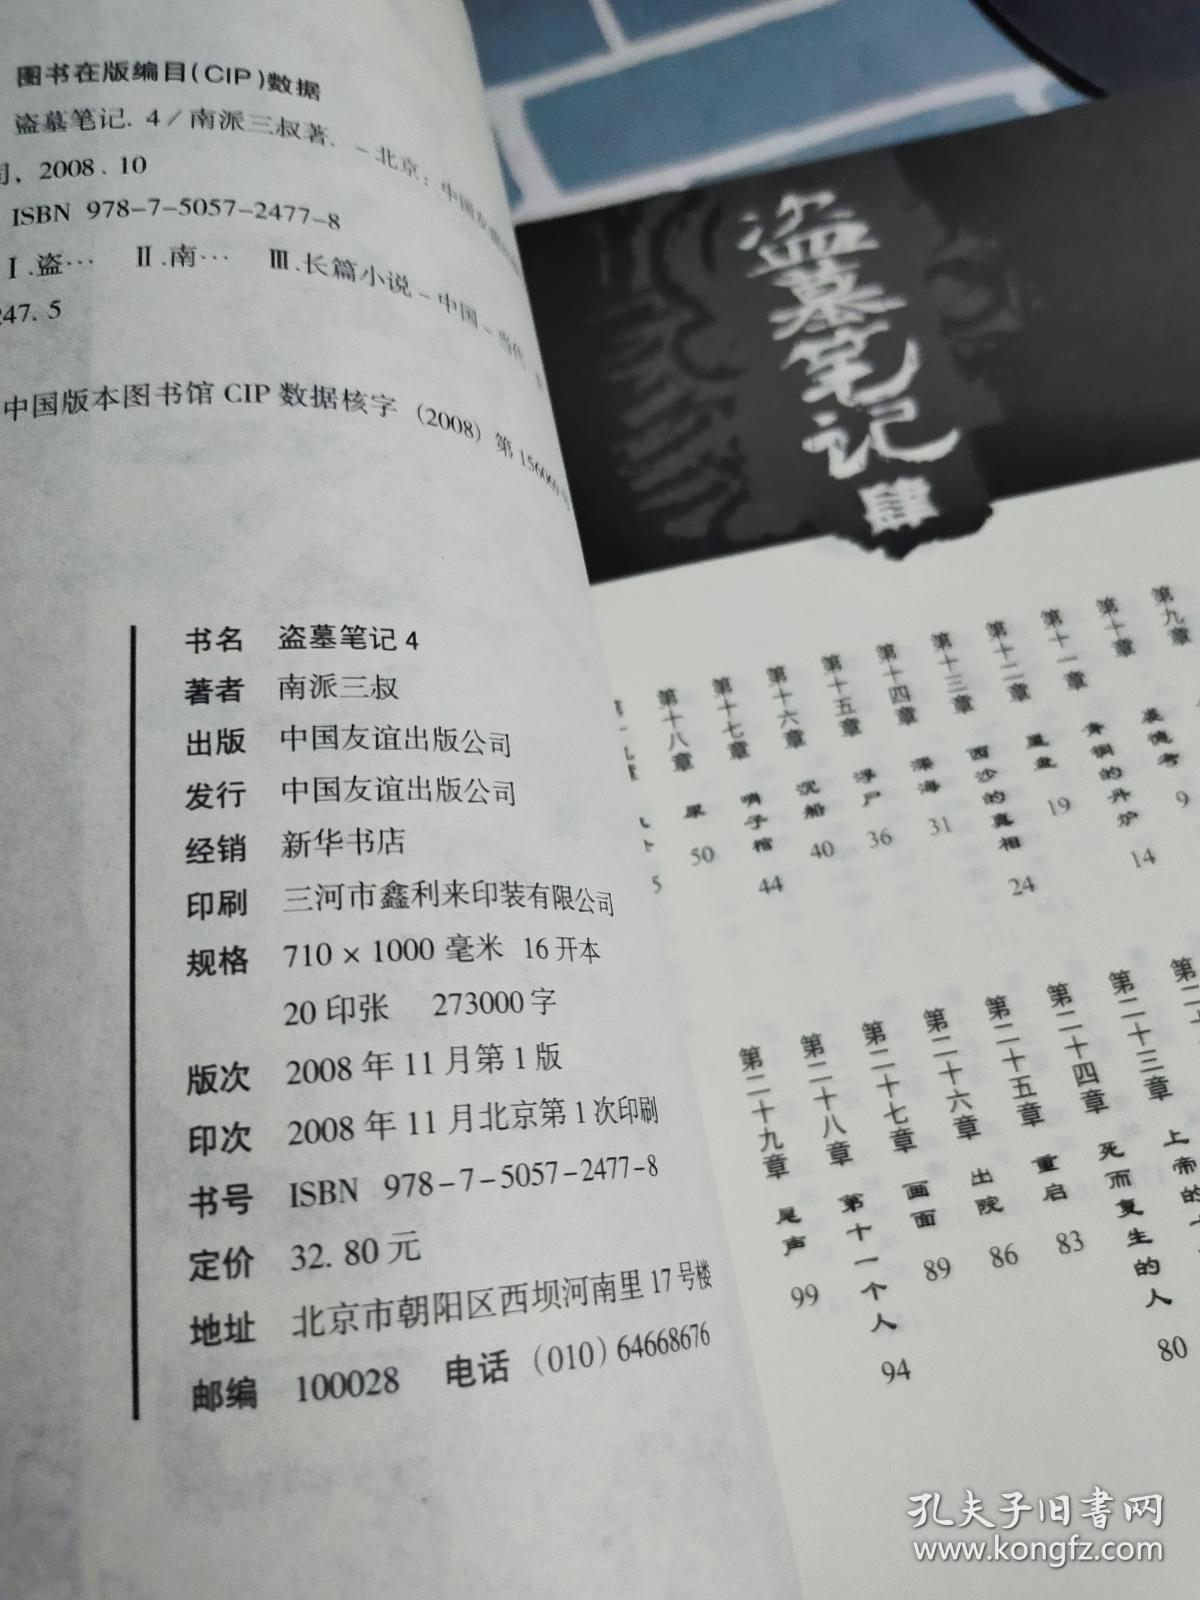 图书在版编目(CIP)数据
盗墓笔记. 4 / 南派三叔著. - 北京: 中国友谊
司, 2008. 10
ISBN 978-7-5057-2477-8
Ⅰ.盗… Ⅱ.南… Ⅲ.长篇小说-中国-当代
247. 5
中国版本图书馆 CIP 数据核字 (2008) 第
书名 盗墓笔记 4
著者 南派三叔
出版 中国友谊出版公司
发行 中国友谊出版公司
经销 新华书店
印刷 三河市鑫利来印装有限公司
规格 710 × 1000 毫米 16 开本
20 印张 273000 字
版次 2008 年 11 月第 1 版
印次 2008 年 11 月北京第 1 次印刷
书号 ISBN 978-7-5057-2477-8
定价 32. 80 元
地址 北京市朝阳区西坝河南里 17 号楼
邮编 100028 电话 (010) 64668676
盗墓笔记
肆
第九章 裘德考 9
第十章 青铜的丹炉 14
第十一章 星盘 19
第十二章 西沙的真相 24
第十三章 深海 31
第十四章 浮尸 36
第十五章 沉船 40
第十六章 哨子棺 44
第十七章 尿 50
第十八章
5
上帝的
第二十三章 死而复生的人 80
第二十四章 重启 83
第二十五章 出院 86
第二十六章 画面 89
第二十七章 第十一个人 94
第二十八章 尾声 99
第二十九章
孔夫子旧书网
www.kongfz.com